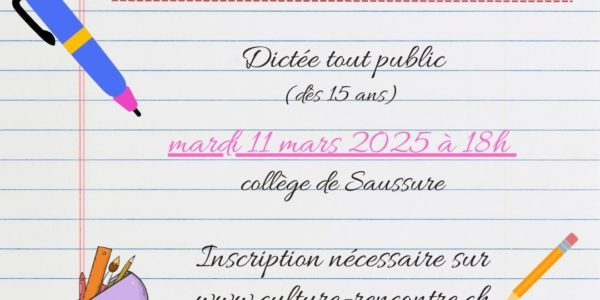 Dictée tout public
(dès 15 ans)
mardi 11 mars 2025 à 18h
collège de Saussure
Inscription nécessaire sur
www.culture-rencontre.ch